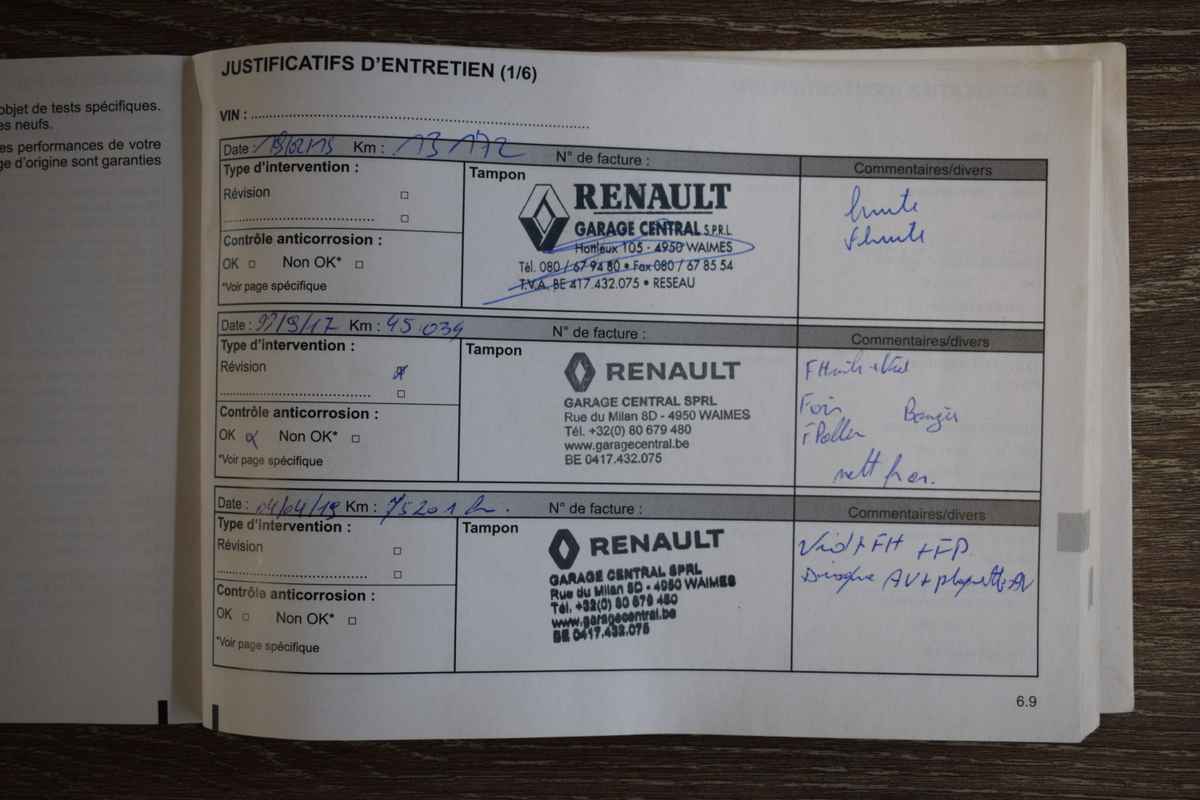 objet de tests spécifiques.
es neufs.
es performances de votre
ge d'origine sont garanties
JUSTIFICATIFS D'ENTRETIEN (1/6)
VIN :
Date : Km : 13 172 N° de facture :
Type d'intervention :
Révision
Contrôle anticorrosion :
OK Non OK*
*Voir page spécifique
Tampon
RENAULT
GARAGE CENTRAL S.P.R.L
Hottleux 105 - 4950 WAIMES
Tél. 080 / 67 94 80 • Fax 080 / 67 85 54
T.V.A. BE 417.432.075 • RESEAU
Commentaires/divers
huile
Fhuile
Date : Km : 45 039 N° de facture :
Type d'intervention :
Révision
Contrôle anticorrosion :
OK Non OK*
*Voir page spécifique
Tampon
RENAULT
GARAGE CENTRAL SPRL
Rue du Milan 8D - 4950 WAIMES
Tél. +32(0) 80 679 480
www.garagecentral.be
BE 0417.432.075
Commentaires/divers
F Air Bougies
F Pollen
nett frein
Date : 04/04/19 Km : 75201 N° de facture :
Type d'intervention :
Révision
Contrôle anticorrosion :
OK Non OK*
*Voir page spécifique
Tampon
RENAULT
GARAGE CENTRAL SPRL
Rue du Milan 8D - 4950 WAIMES
Tél. +32(0) 80 679 480
www.garagecentral.be
BE 0417.432.075
Commentaires/divers
Vid + FH + FP
Disque AV + plaquette AV
6.9